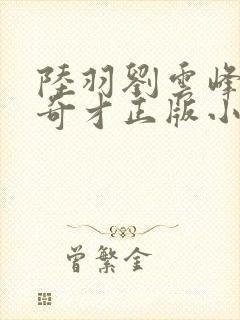 陸羽劉雲峰
奇才正版小
曾繁金